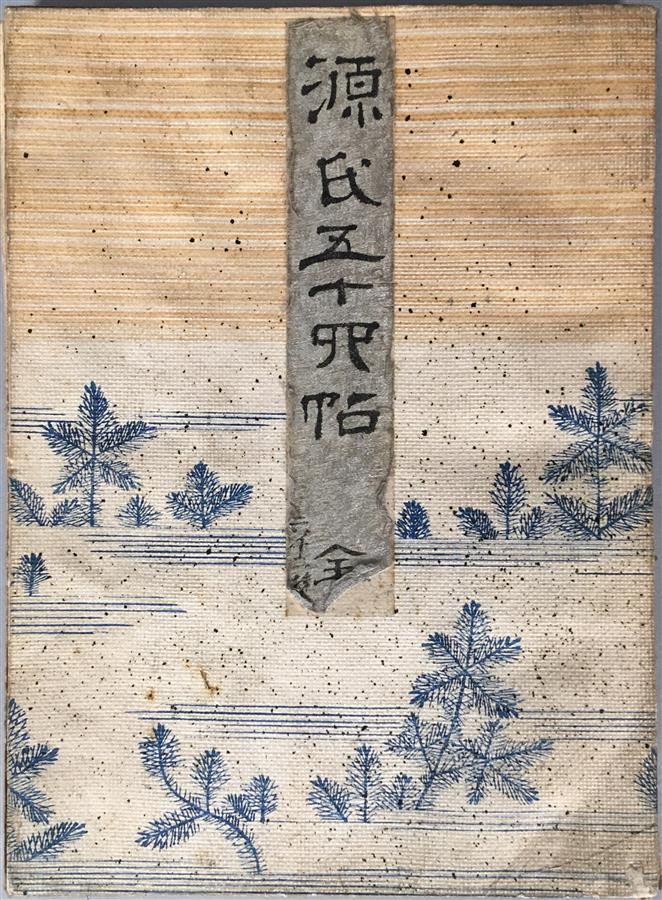 源氏五十四帖
全